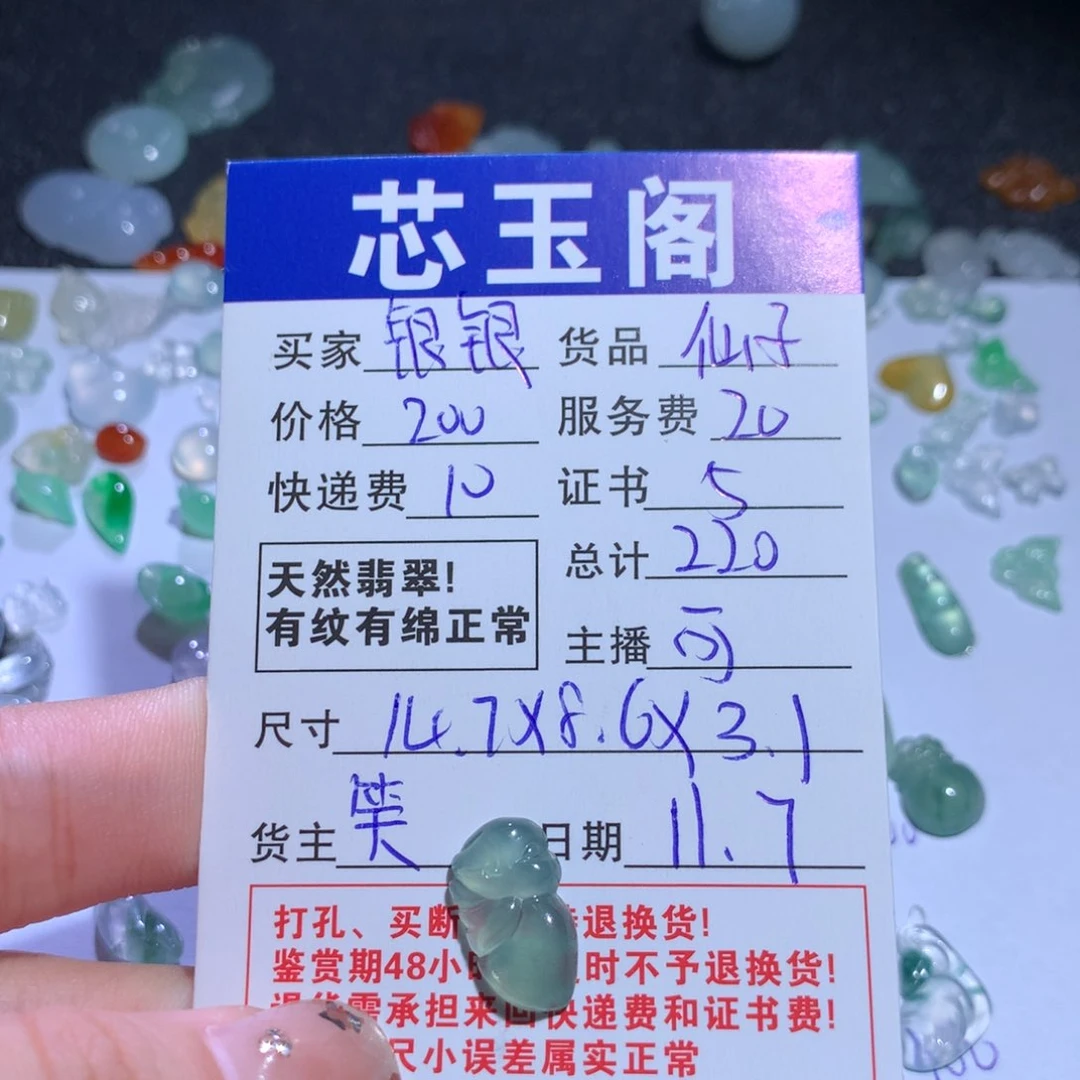 芯玉阁
买家 银银 货品 仙子
价格 200 服务费 20
快递费 10 证书 5
总计 220
天然翡翠!
有纹有绵正常
主播 可
尺寸 14.7X8.6X3.1
货主 笑 日期 11.7
打孔、买断 退换货!
鉴赏期48小 时不予退换货!
需承担来回快递费和证书费!
尺小误差属实正常